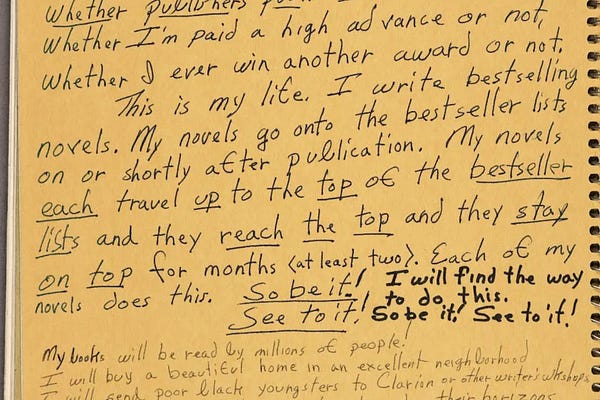 whether publishers
whether I'm paid a high advance or not,
whether I ever win another award or not.
This is my life. I write bestselling
novels. My novels go onto the bestseller lists
on or shortly after publication. My novels
each travel up to the top of the bestseller
lists and they reach the top and they stay
on top for months (at least two). Each of my
novels does this. So be it! I will find the way
to do this.
See to it! So be it! See to it!
My books will be read by millions of people!
I will buy a beautiful home in an excellent neighborhood
I will send poor black youngsters to Clarion or other writer's wkshops
their horizons